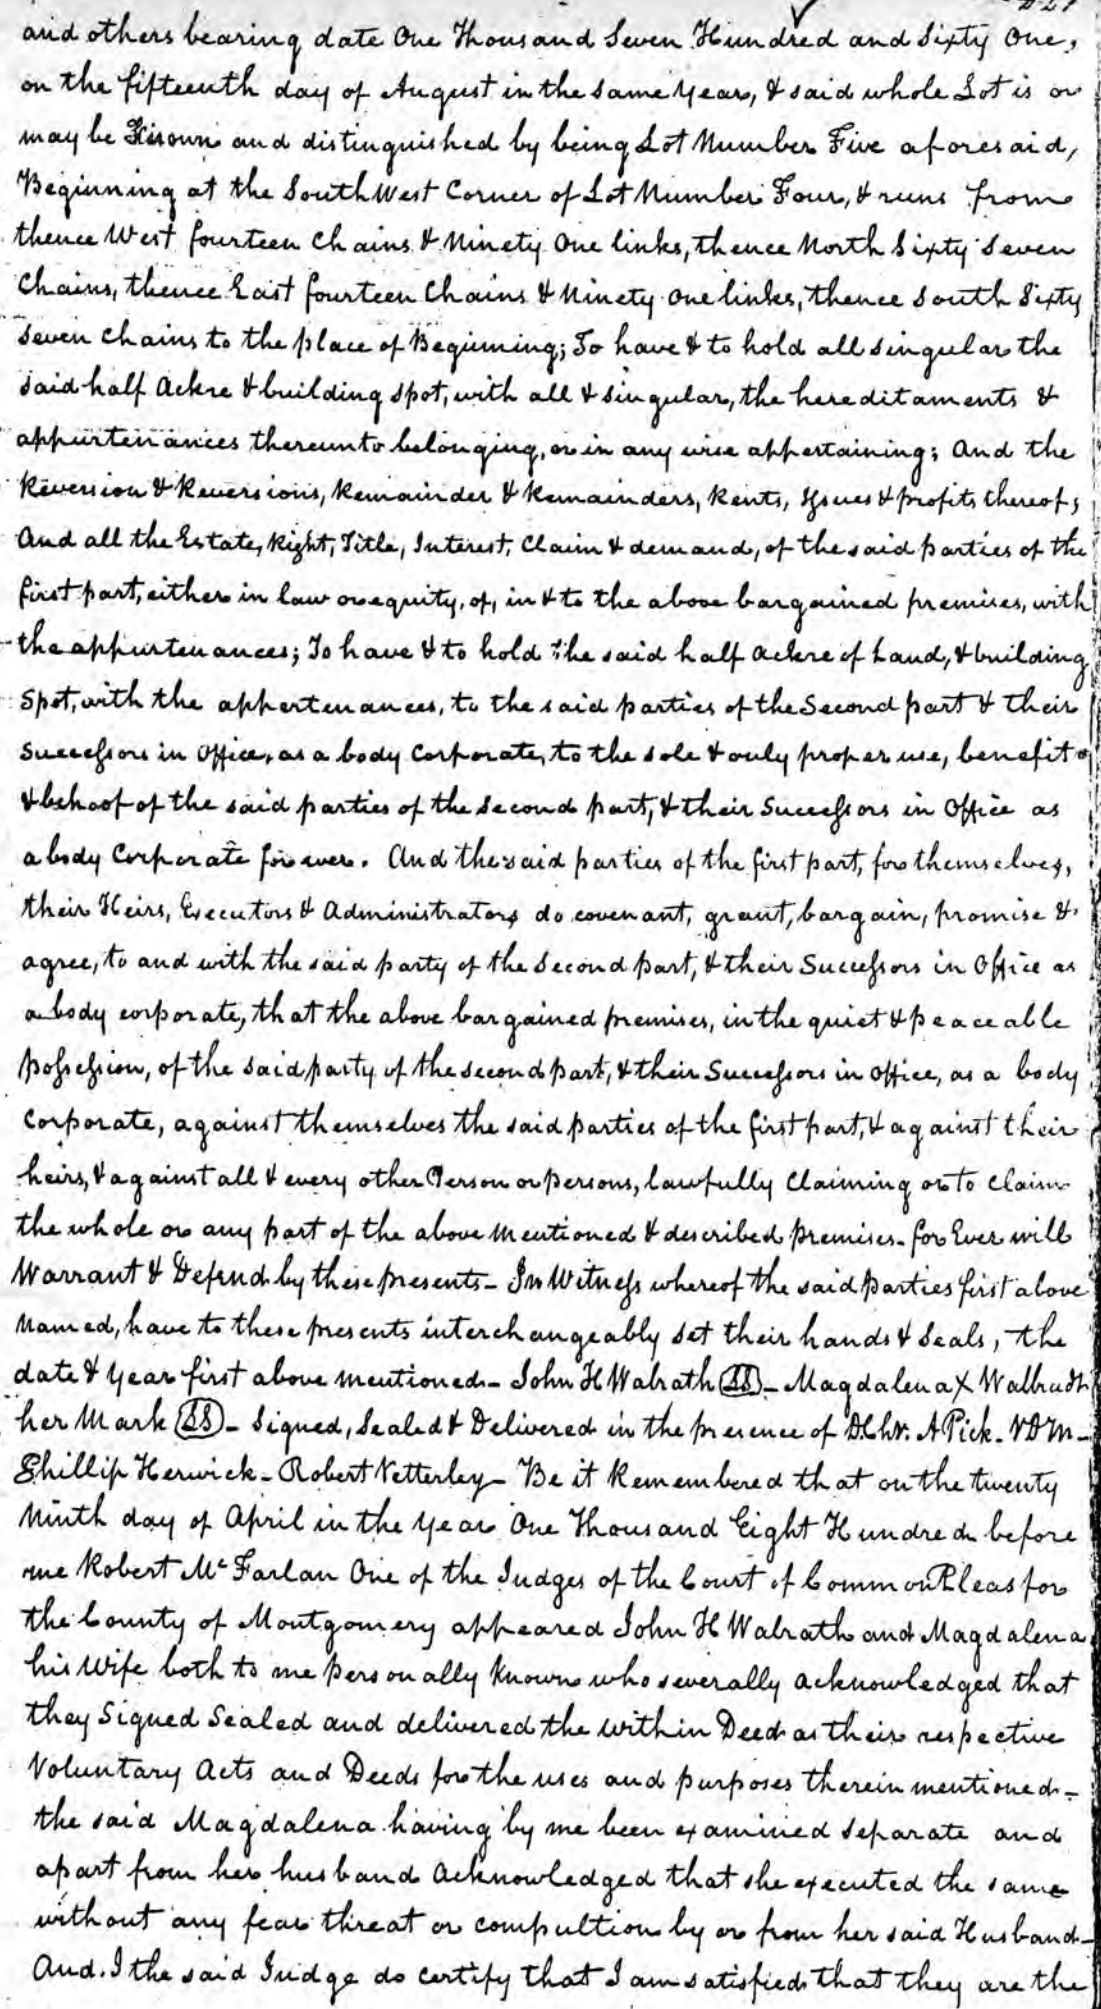 and others bearing date One Thousand Seven Hundred and Sixty One,
on the fifteenth day of August in the same year, & said whole Lot is or
may be Known and distinguished by being Lot Number Five aforesaid,
Beginning at the South West Corner of Lot Number Four, & runs from
thence West fourteen Chains & Ninety One links, thence North Sixty Seven
Chains, thence East fourteen Chains & Ninety one links, thence South Sixty
Seven Chains to the place of Beginning; To have & to hold all singular the
said half Ackre & building spot, with all & singular, the hereditaments &
appurtenances thereunto belonging, or in any wise appertaining; And the
Reversion & Reversions, Remainder & Remainders, Rents, Issues & profits thereof;
And all the Estate, Right, Title, Interest, Claim & demand, of the said parties of the
first part, either in law or equity, of, in & to the above bargained premises, with
the appurtenances; To have & to hold the said half Ackre of Land, & building
Spot, with the appertenances, to the said parties of the Second part & their
Successors in Office, as a body Corporate, to the sole & only proper use, benefit
& behoof of the said parties of the second part, & their Successors in Office as
a body Corporate for ever. And the said parties of the first part, for themselves,
their Heirs, Executors & Administrators do covenant, grant, bargain, promise &
agree, to and with the said party of the Second part, & their Successors in Office as
a body corporate, that the above bargained premises, in the quiet & peaceable
possession, of the said party of the second part, & their Successors in office, as a body
Corporate, against themselves the said parties of the first part, & against their
heirs, & against all & every other Person or persons, lawfully Claiming or to Claim
the whole or any part of the above mentioned & described premises - for Ever will
Warrant & Defend by these presents - In Witness whereof the said parties first above
Named, have to these presents interchangeably set their hands & Seals, the
date & year first above mentioned - John H Walrath LS - Magdalena X Walbradt
her Mark LS - Signed, Sealed & Delivered in the presence of D. Chr. A Pick - V D M -
Phillip Herwick - Robert Netterley - Be it Remembered that on the twenty
Ninth day of April in the year One Thousand Eight Hundred before
me Robert Mc Farlan One of the Judges of the Court of Common Pleas for
the County of Montgomery appeared John H Walrath and Magdalena
his Wife both to me personally known who severally acknowledged that
they Signed Sealed and delivered the within Deed as their respective
Voluntary Acts and Deeds for the uses and purposes therein mentioned -
the said Magdalena having by me been examined separate and
apart from her husband Acknowledged that she executed the same
without any fear threat or compultion by or from her said Husband -
And I the said Judge do certify that I am satisfied that they are the